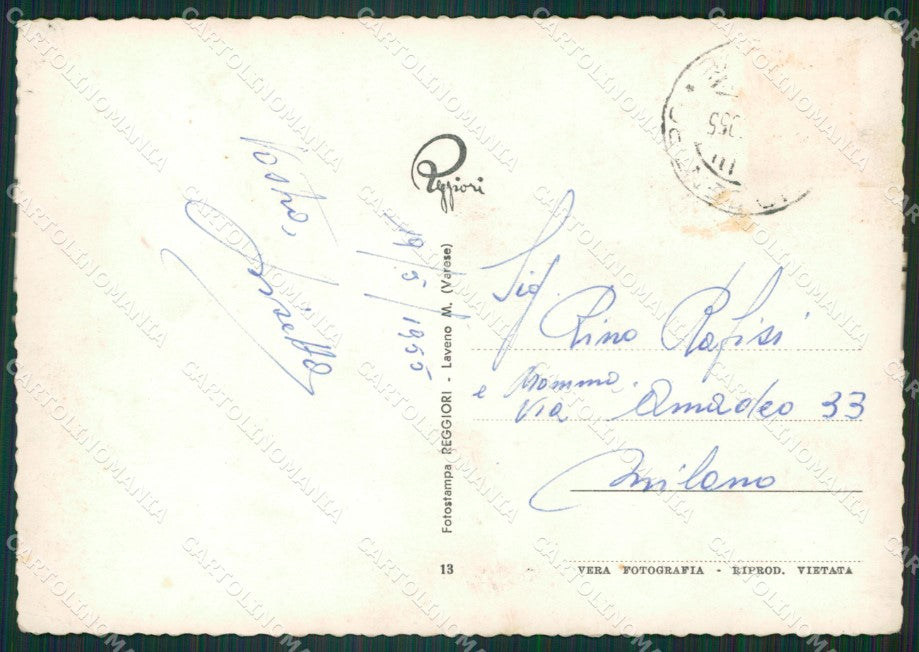 Vostra,
Giuseffa
19/5/1955
Reggiori
Fotostampa REGGIORI - Laveno M. (Varese)
13
Sig.
Rino Rafisi
e Mamma.
Via Amadeo 33
Milano
VERA FOTOGRAFIA - RIPROD. VIETATA
CARTOLINOMANIA